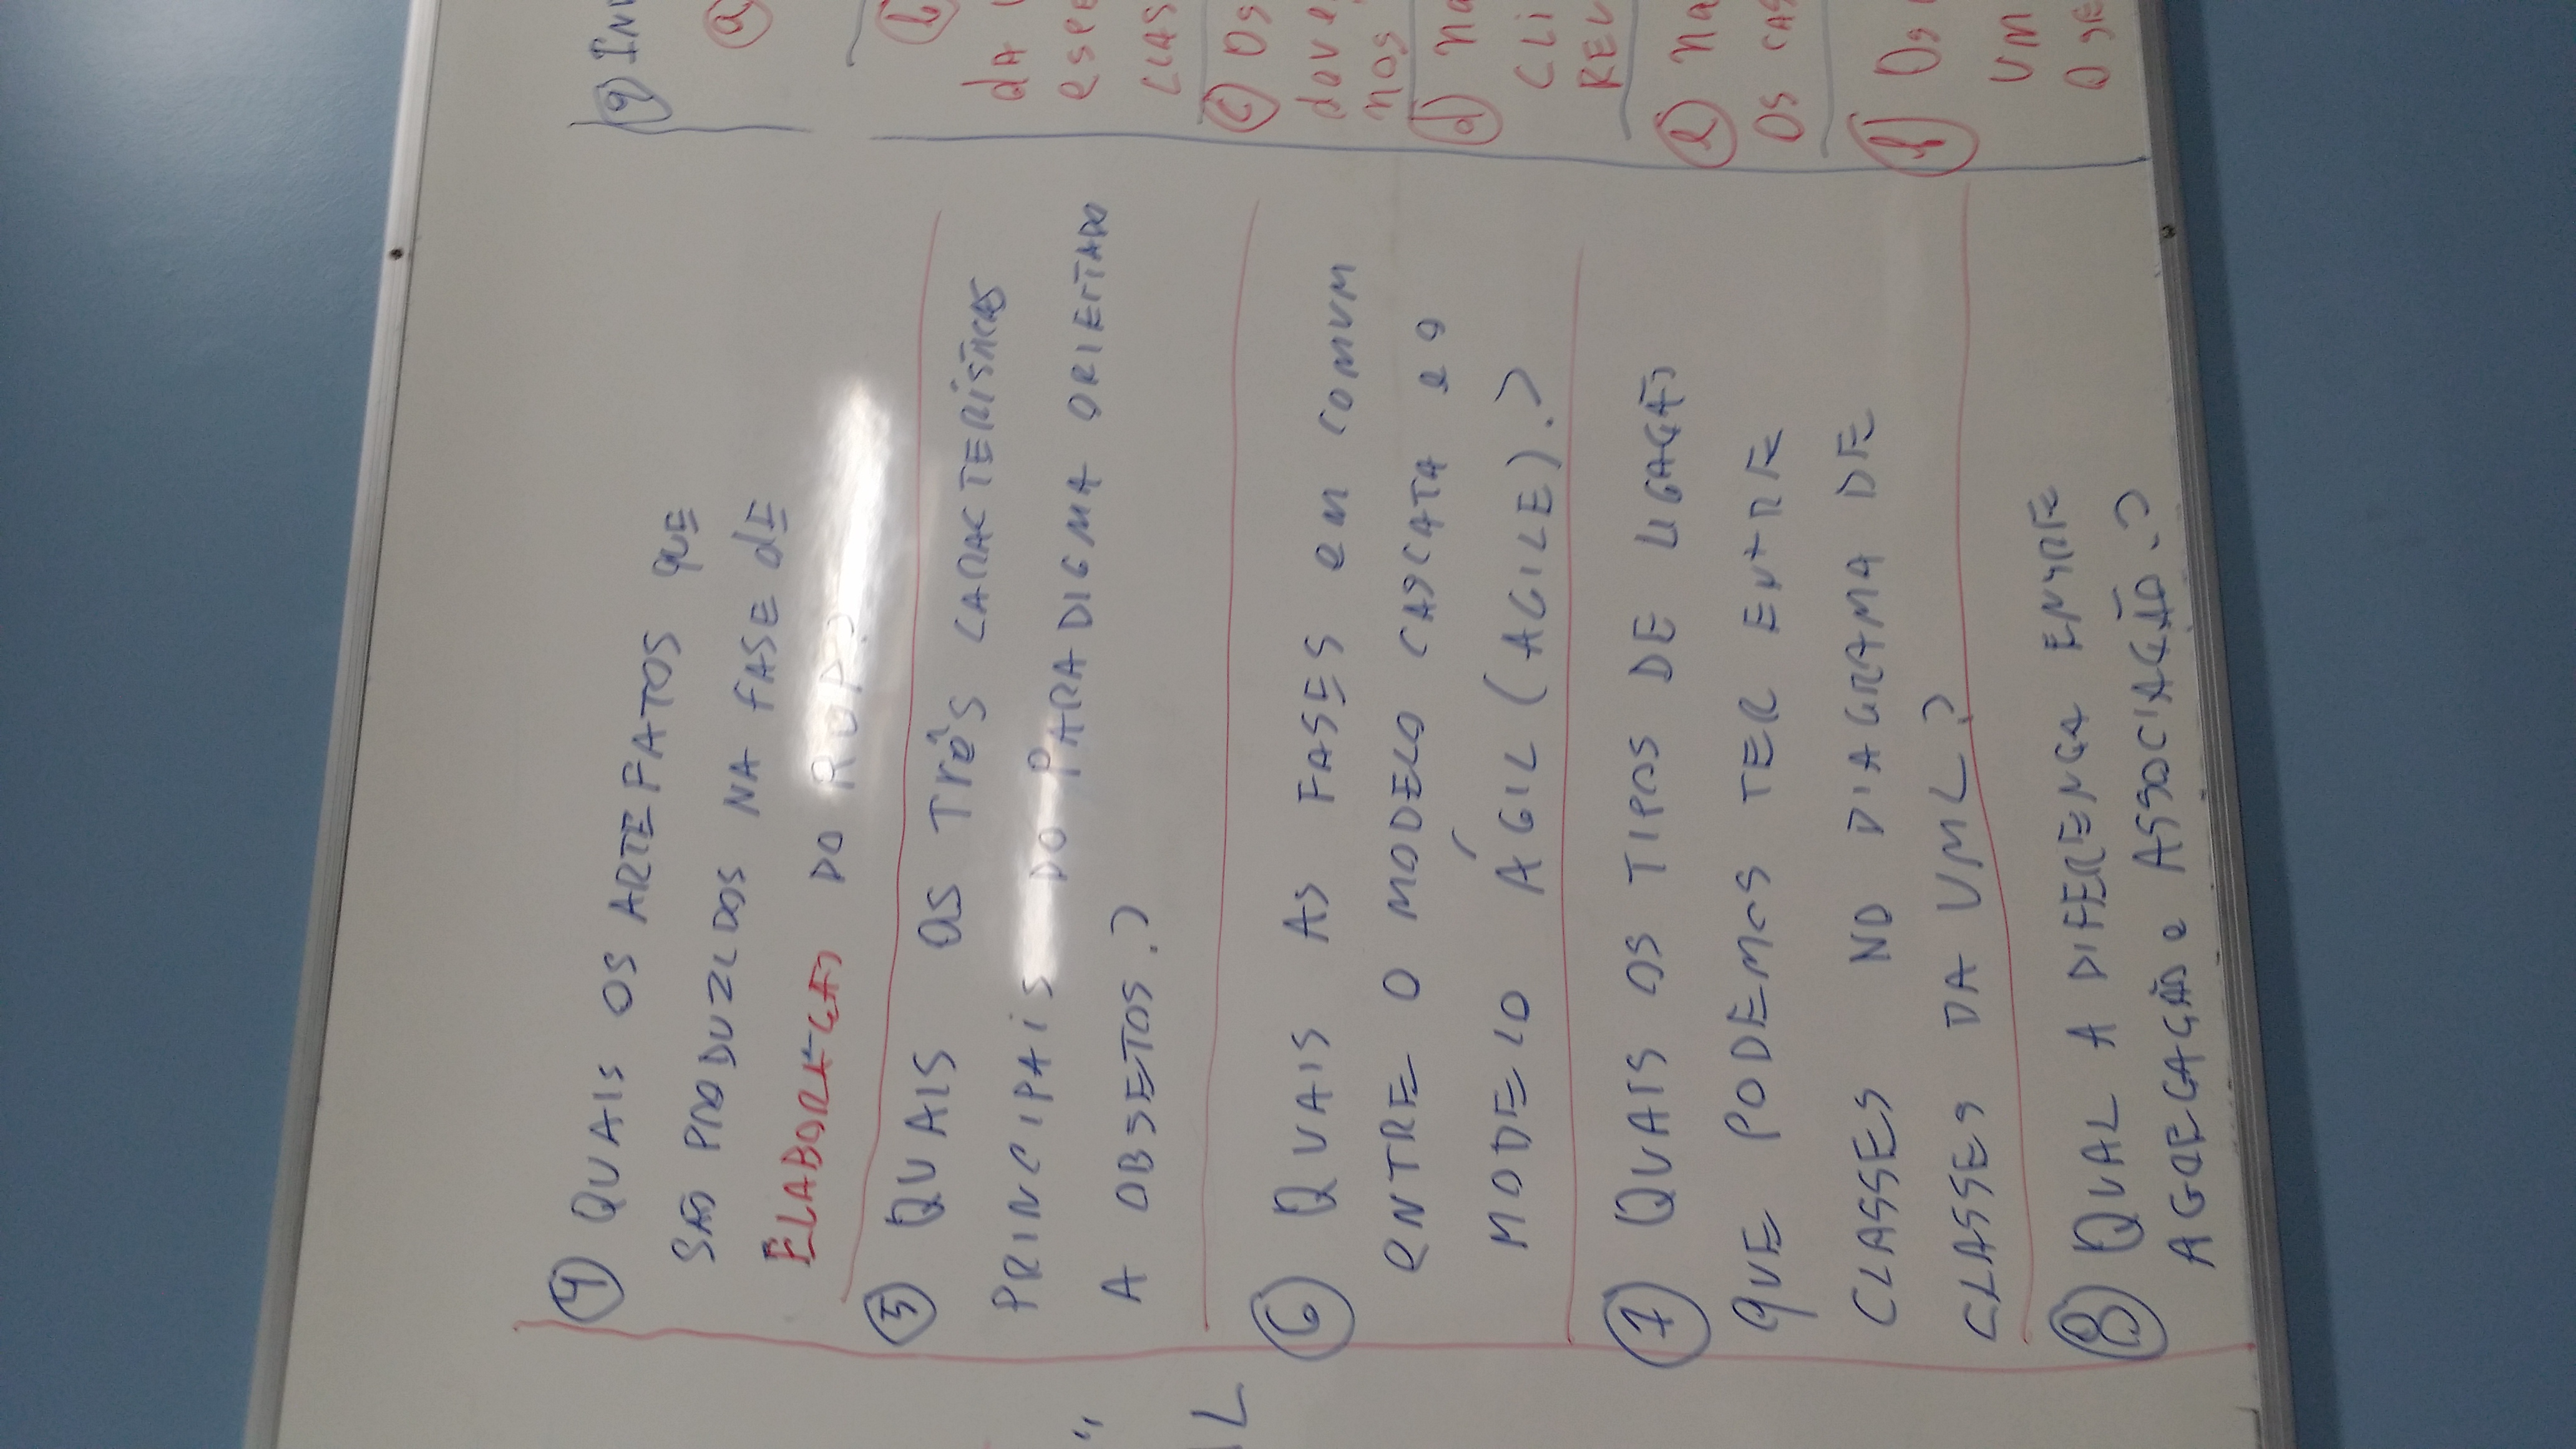 "
IL
4 QUAIS OS ARTEFATOS QUE
SÃO PRODUZIDOS NA FASE dE
ELABORAÇÃO DO RUP?
5 QUAIS OS TRÊS CARACTERÍSTICAS
PRINCIPAIS DO PARADIGMA ORIENTADO
A OBJETOS.?
6 QUAIS AS FASES em comum
ENTRE O MODELO CASCATA e o
MODELO ÁGIL (AGILE).?
7 QUAIS OS TIPOS DE LIGAÇÃO
QUE PODEMOS TER ENTRE
CLASSES NO DIAGRAMA DE
CLASSES DA UML?
8 QUAL A DIFERENÇA ENTRE
AGREGAÇÃO e ASSOCIAÇÃO.?
9 INV
a
b
dA
espe
CLAS
c Os
deve
nos
d na
CLi
REU
e na
OS CAS
f Os
UM
O SE